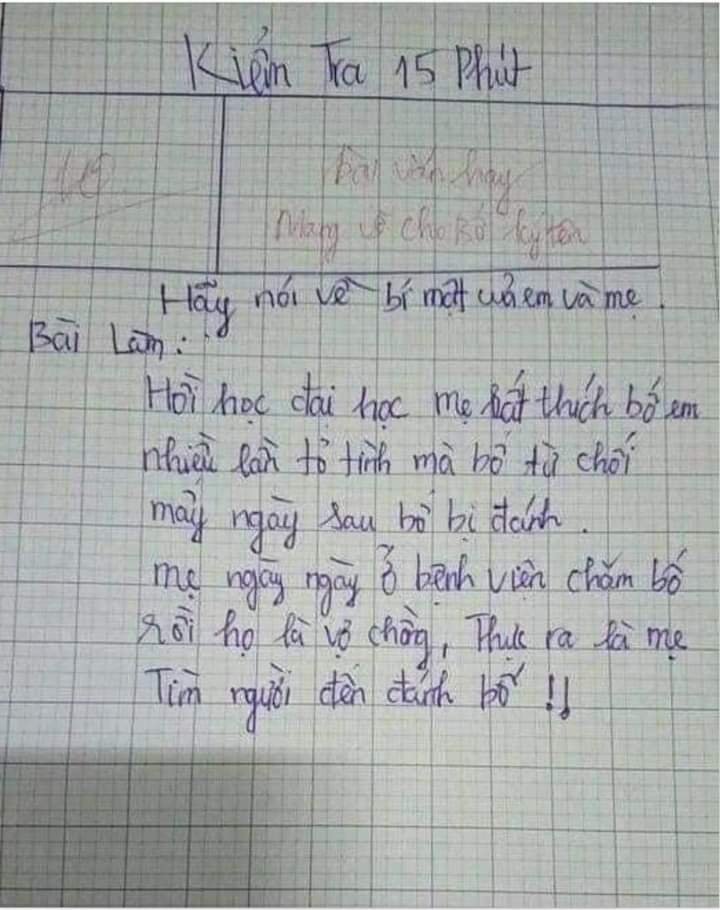 Kiểm Tra 15 Phút
Bài văn hay
Mang về cho Bố ký tên
Hãy nói về bí mật của em và mẹ.
Bài Làm:
Hồi học đại học mẹ rất thích bố em
nhiều lần tỏ tình mà bố từ chối
mấy ngày sau bố bị đánh.
mẹ ngày ngày ở bệnh viện chăm bố
rồi họ là vợ chồng, Thực ra là mẹ
Tìm người đến đánh bố !!